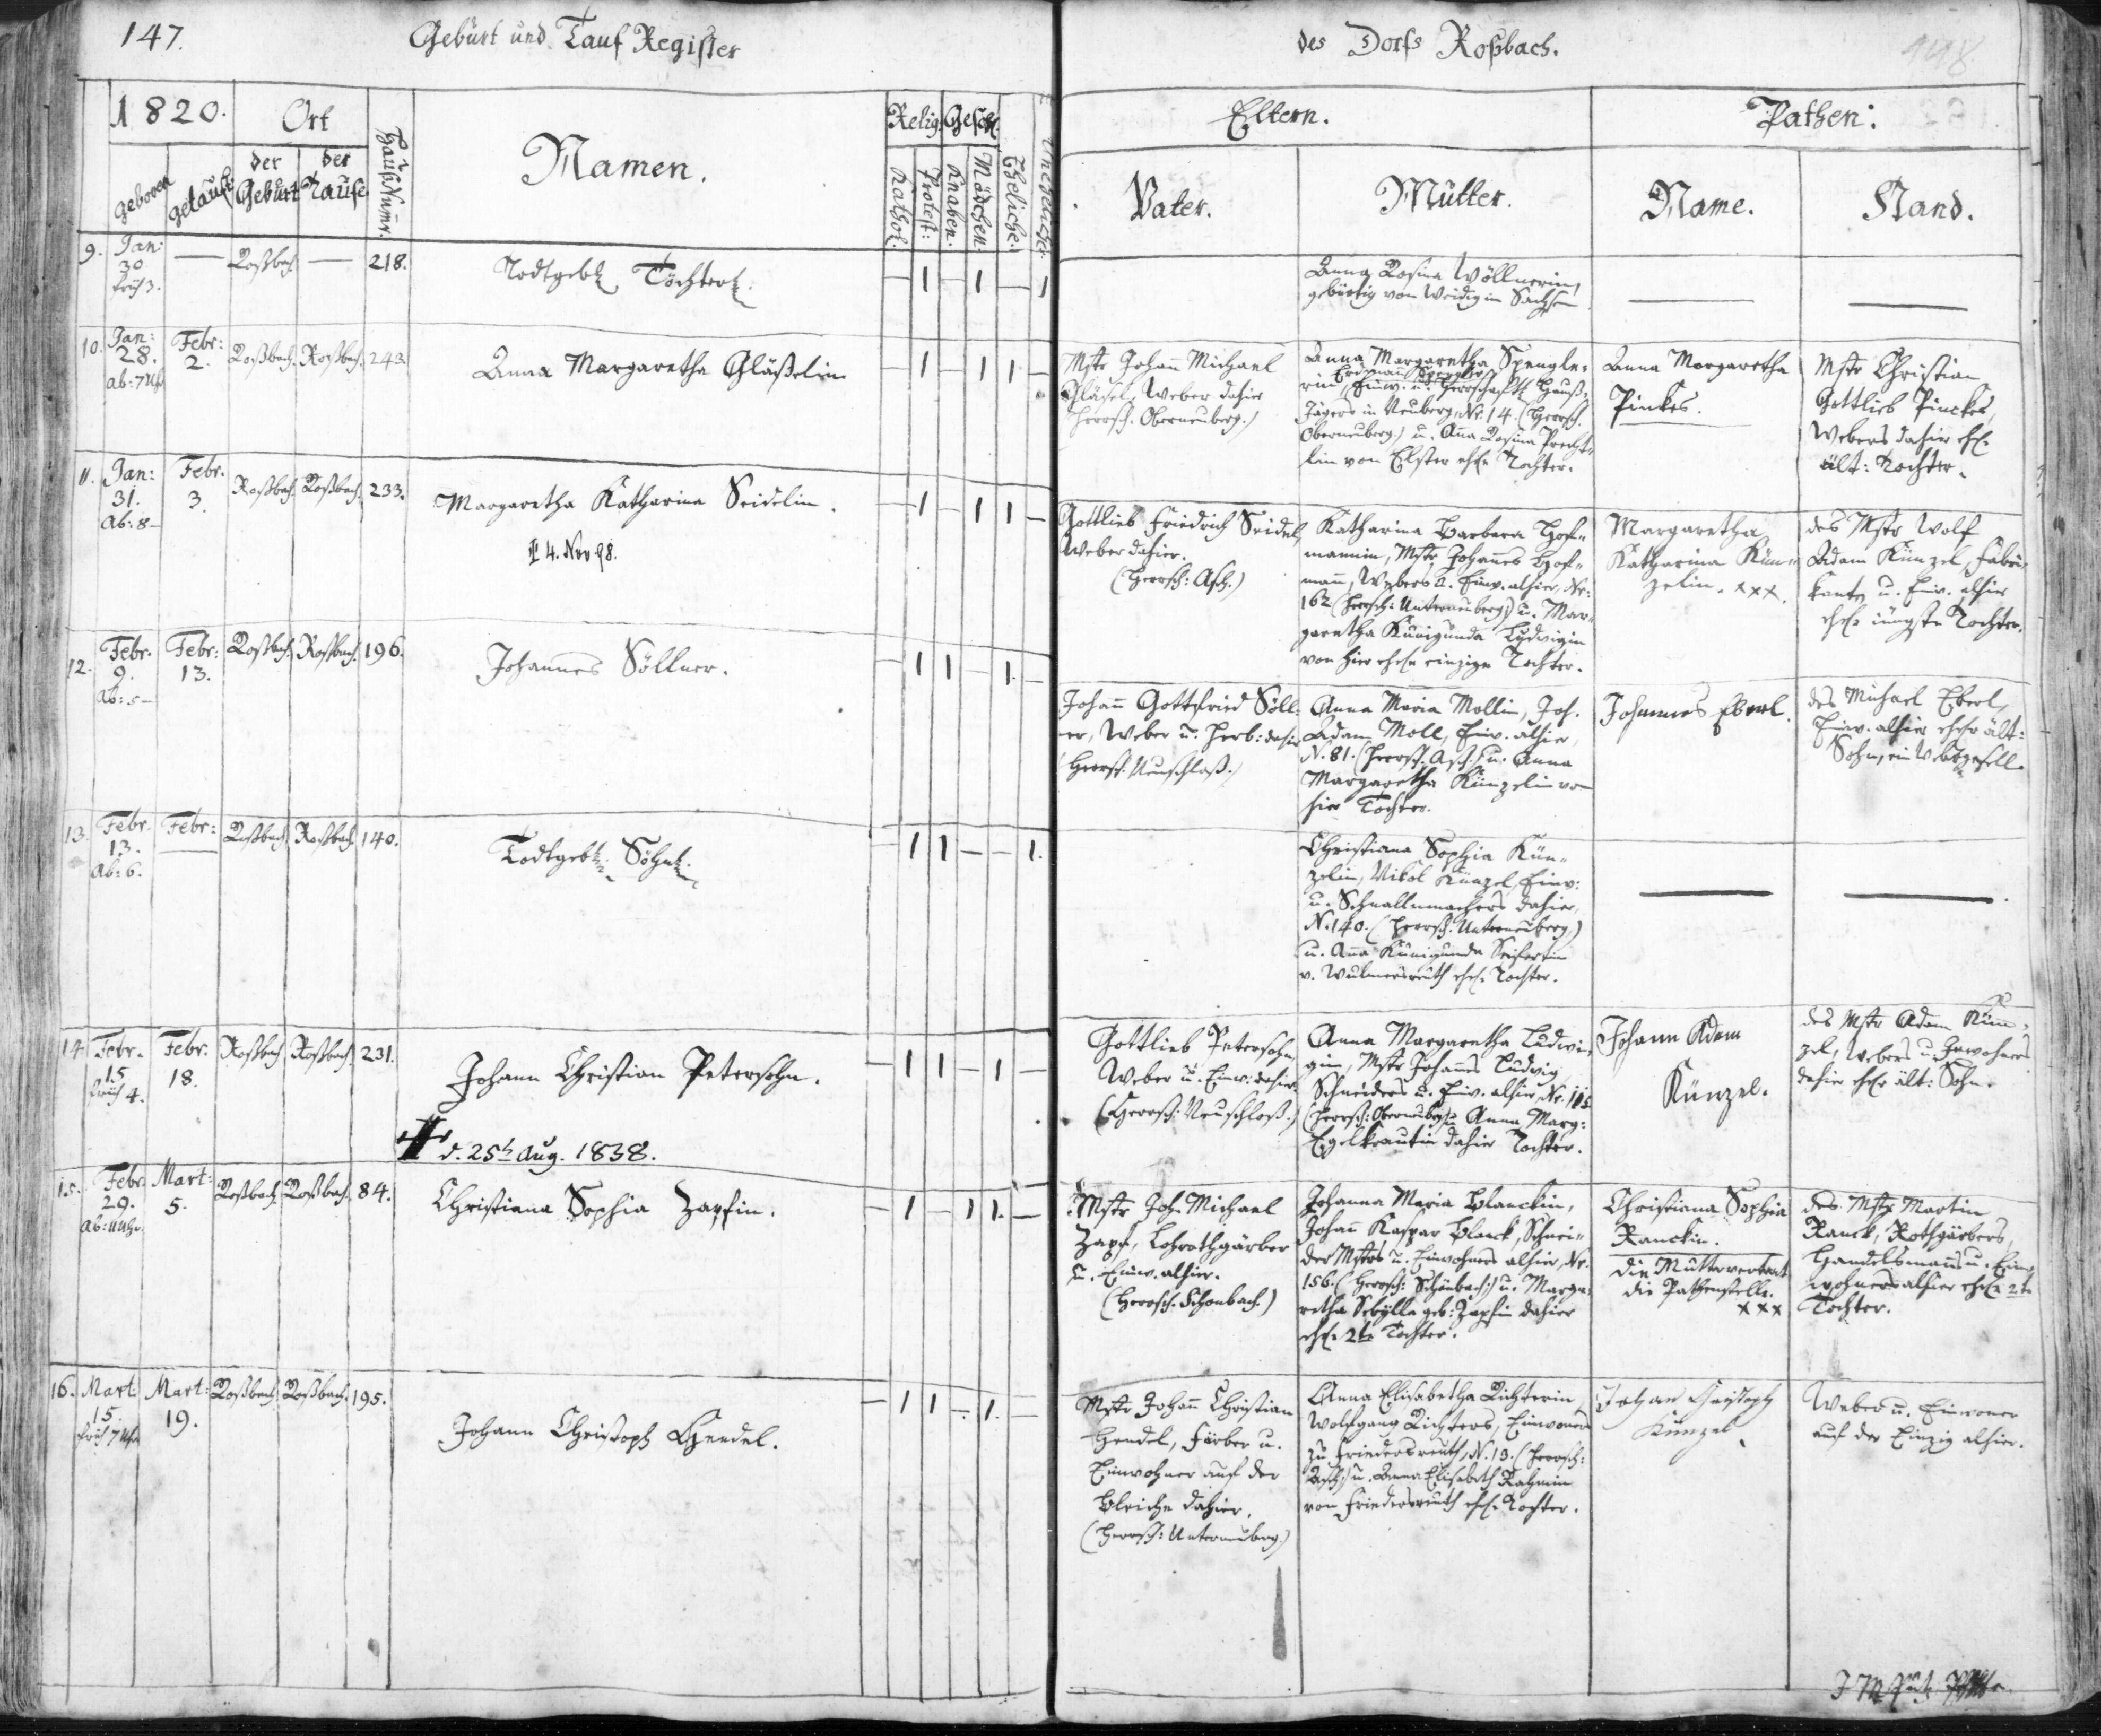 147.
Geburt und Tauf Register
des Dorfs Roßbach.
1820.
Ort
Hauß Numer.
Namen.
Relig.
Geschl.
Eheliche.
Uneheliche.
geboren
getauft:
der Geburt
der Taufe
Kathol.
Protest:
Knaben.
Mädchen.
Eltern.
Pathen:
Vater.
Mutter.
Name.
Stand.
9. Jan: 30 früh 3. — Roßbach — 218.
Todtgeb. Töchterl.
— 1 — 1 — 1
Anna Rosina Wöllnerin,
gebürtig von Weidig in Sachsen
10. Jan: 28. Ab: 7 Uhr Febr: 2. Roßbach. Roßbach. 243.
Anna Margaretha Gläßelin
— 1 — 1 1 —
Mstr Johann Michael
Gläsel, Weber dahier
(Herrsch. Oberneuberg.)
Anna Margaretha Spengle-
Erdmann Spenglers
rin, Einw. u. Herrschaftl Hauß-
Jägers in Neuberg, Nr. 14. (Herrsch.
Oberneuberg.) u. Ana Rosina
von Elster ehel. Tochter.
Anna Margaretha
Pinkes.
Mstr Christian
Gottlieb Pinckes,
Webers dahier ehl.
ält: Tochter.
11. Jan: 31. Ab: 8 — Febr. 3. Roßbach. Roßbach. 233.
Margaretha Katharina Seidelin.
4. Nov 98.
— 1 — 1 1 —
Gottlieb Friedrich Seidel,
Weber dahier.
(Herrsch: Asch.)
Katharina Barbara Hof-
mannin, Mstr Johannes Hof-
mann, Webers u. Einw. alhier, Nr:
162 (Herrsch: Unterneuberg.) u. Mar-
garetha Kunigunda Ludwigin
von hier ehel. einzige Tochter.
Margaretha
Katharina Kün-
zelin. xxx.
des Mstr Wolf
Adam Künzel, Fabri-
kants u. Einw. alhier
ehel. jüngste Tochter.
12. Febr. 9. Ab: 5 — Febr: 13. Roßbach. Roßbach. 196.
Johannes Söllner.
— 1 1 — 1. —
Johann Gottfried Söll-
ner, Weber u. Herb: dahier
(Herrsch: Neuschloß.)
Anna Maria Mollin, Joh.
Adam Moll, Einw. alhier,
N. 81. (Herrsch. Asch.) u. Anna
Margaretha Künzelin von
hier Tochter.
Johannes Eberl.
des Michael Eberl,
Einw. alhier ehel. ält:
Sohn, ein Webgesell.
13. Febr. 13. Ab: 6. Febr: — Roßbach. Roßbach. 140.
Todtgeb. Söhnl.
— 1 1 — — 1.
Christiana Sophia Kün-
zelin, Nikol Künzel, Einw:
u. Schnallenmachers dahier,
N. 140. (Herrsch. Unterneuberg.)
u. Ana Kunigunda Seifertin
v. Wulmersreuth ehel. Tochter.
14. Febr. 15 früh 4. Febr: 18. Roßbach. Roßbach. 231.
Johann Christian Petersohn.
d. 25t Aug. 1838.
— 1 1 — 1 —
Gottlieb Petersohn,
Weber u. Einw: dahier.
(Herrsch: Neuschloß.)
Anna Margaretha Ludwi-
gin, Mstr Johannes Ludwig
Schneiders u. Einw. alhier, Nr. 115
(Herrsch: Oberneuberg) u. Anna Marg:
Egelkrautin dahier Tochter.
Johann Adam
Künzel.
des Mstr Adam Kün-
zel, Webers u. Inwohners
dahier ehel. ält: Sohn.
15. Febr. 29. Mart: 5. Roßbach. Roßbach. 84.
Christiana Sophia Zapfin.
— 1 — 1 1. —
Mstr Joh. Michael
Zapf, Lohrothgärber
u. Einw. alhier.
(Herrsch. Schönbach.)
Johanna Maria Blanckin,
Johann Kaspar Blanck, Schnei-
der Mstrs u. Einwohners alhier, Nr.
156. (Herrsch: Schönbach.) u. Marga-
retha Sibylla geb: Zapfin dahier
ehel. 2te Tochter.
Christiana Sophia
Ranckin.
die Mutter vertrat
die Pathenstelle.
xxx
des Mstr Martin
Ranck, Rothgärbers,
Handelsmanns u. Ein-
wohners alhier ehel. 2te
Tochter.
16. Mart: 15. früh 7 Uhr Mart: 19. Roßbach. Roßbach. 195.
Johann Christoph Hendel.
— 1 1 — 1. —
Mstr Johann Christian
Hendel, Färber u.
Einwohner auf der
Bleiche dahier.
(Herrsch: Unterneuberg.)
Anna Elisabetha Richterin
Wolfgang Richters, Einwoners
zu Friedersreuth, N. 13. (Herrsch:
Asch.) u. Anna Elisabeth
von Friedersreuth ehel. Tochter.
Johan Christoph
Künzel
Weber u. Einwoner
auf der Einzig alhier.